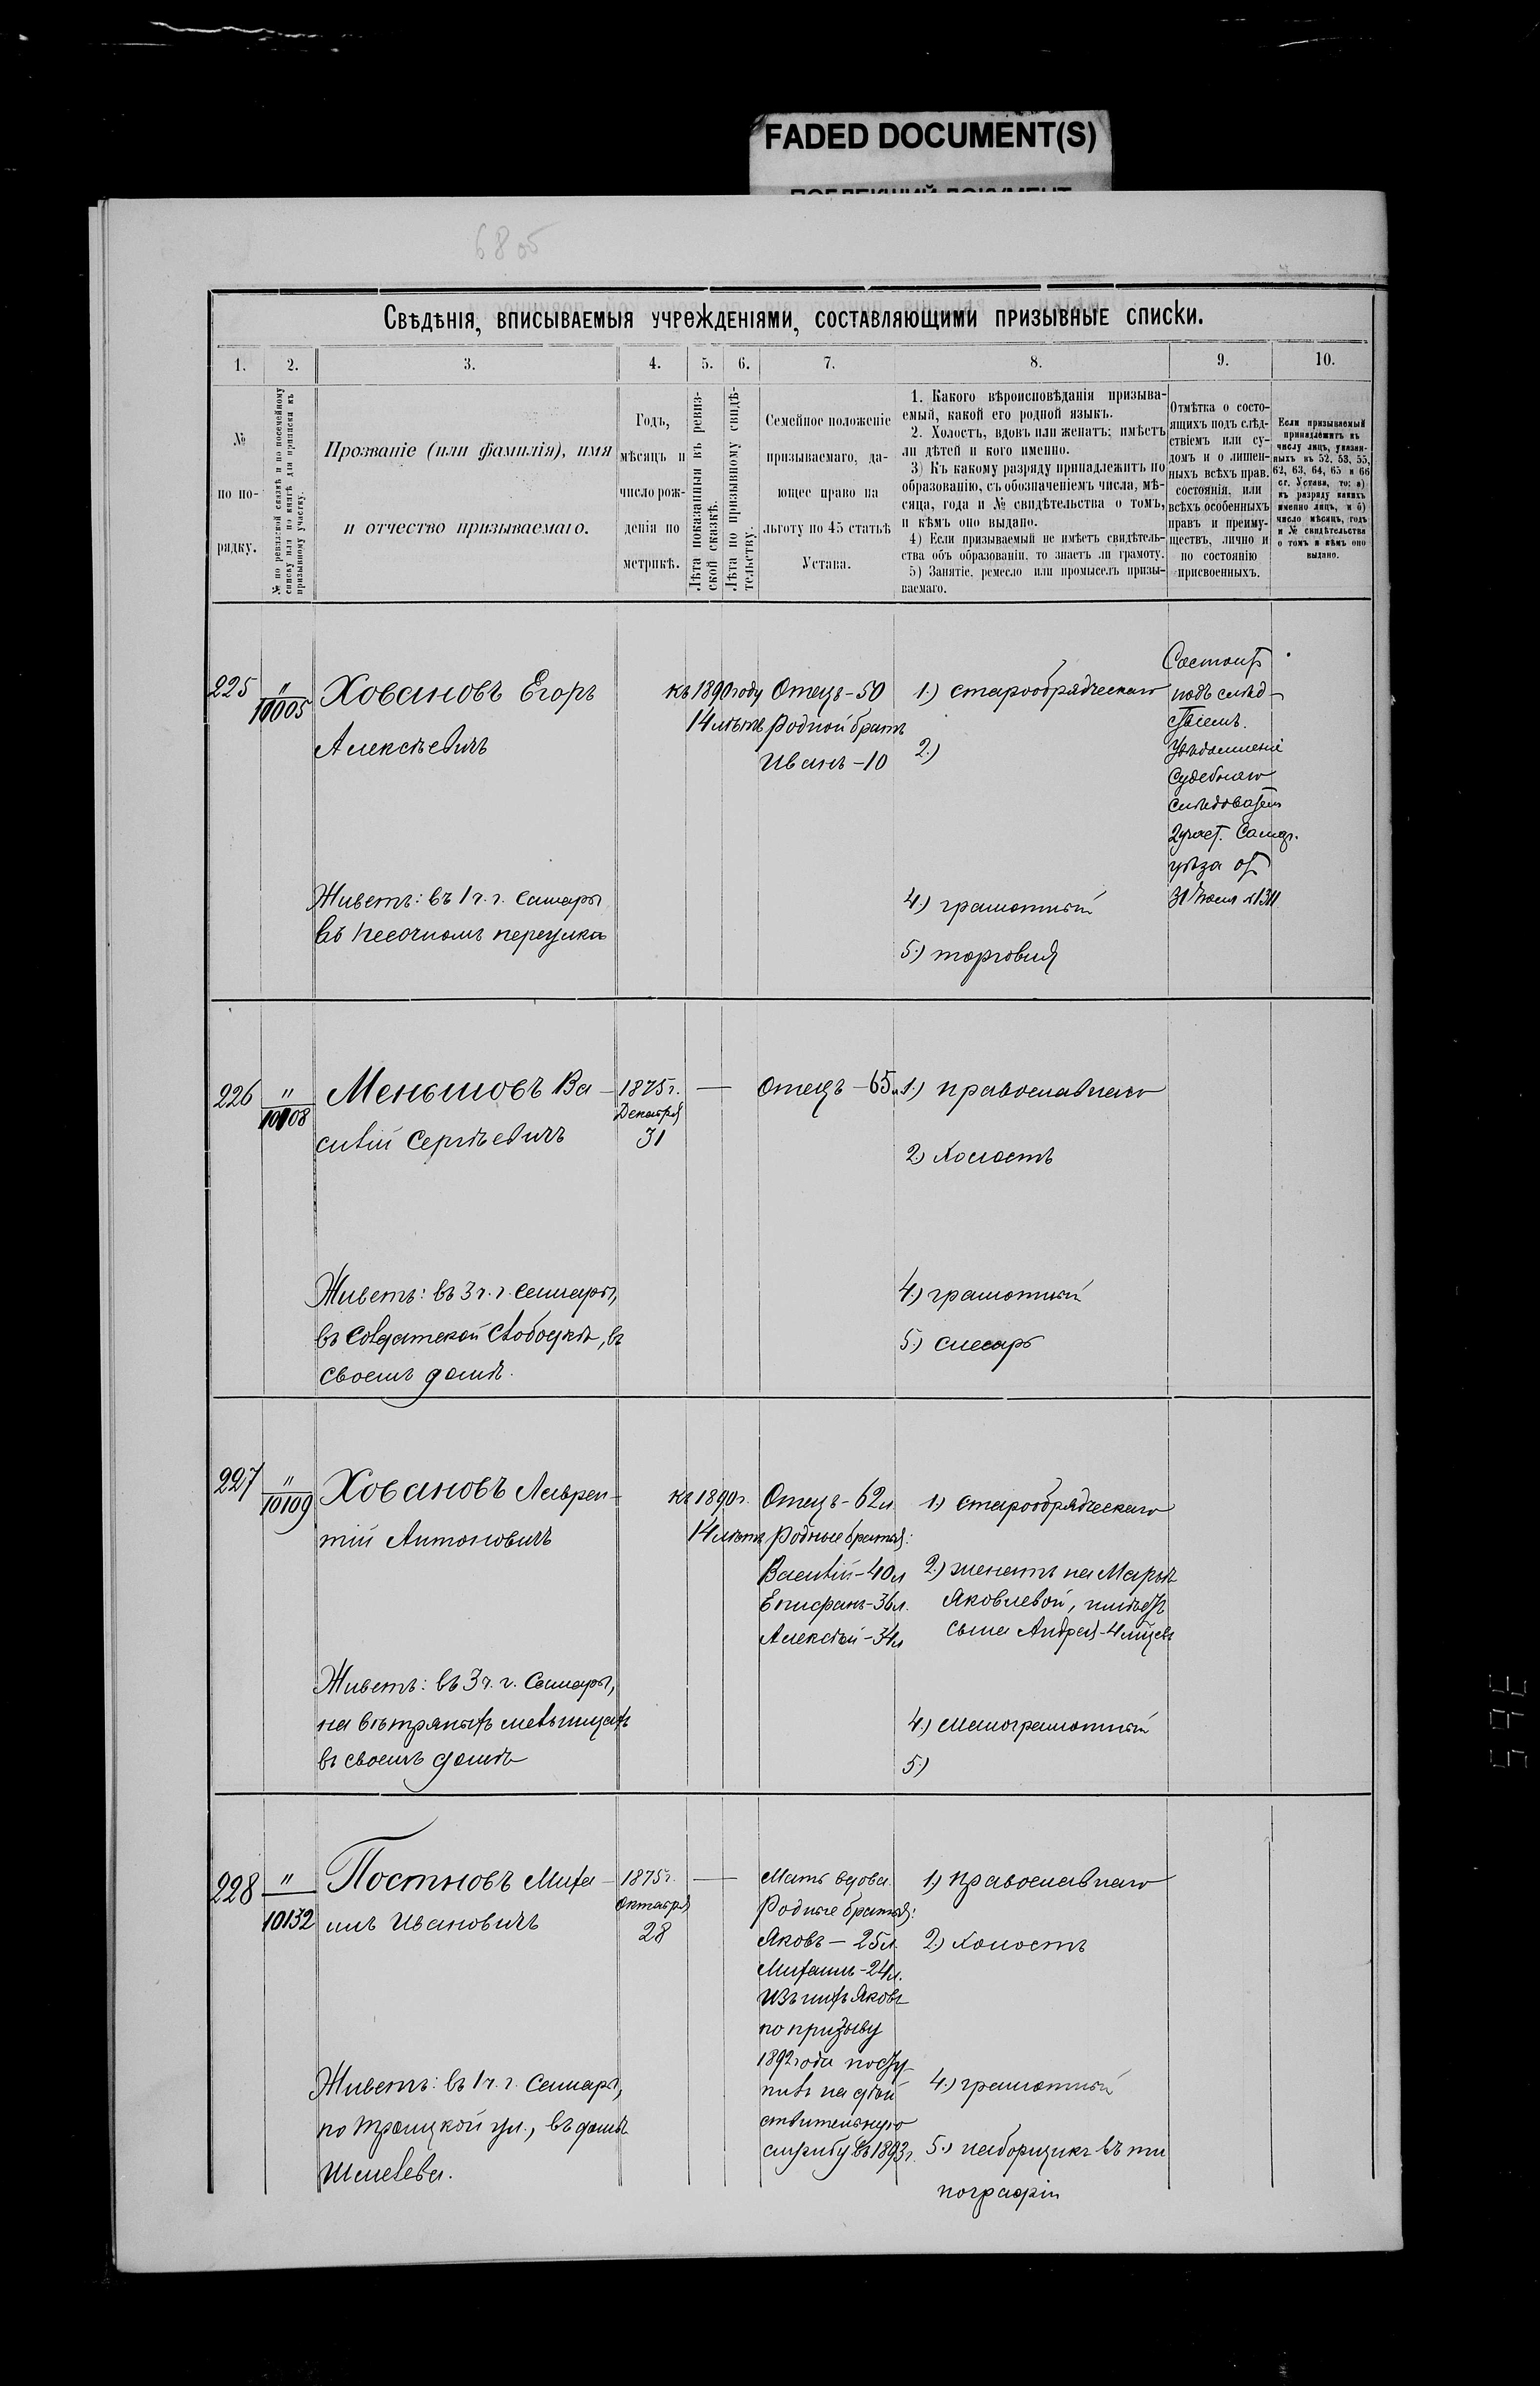 FADED DOCUMENT(S)
6805
Свѣдѣнія, вписываемыя учрежденіями, составляющими призывные списки.
1. 2. 3. 4. 5. 6. 7. 8. 9. 10.
№
по по-
рядку.
№ по ревизской сказкѣ и по посемейному
списку или по книгѣ для приписки къ
призывному участку.
Прозваніе (или фамилія), имя
и отчество призываемаго.
Годъ,
мѣсяцъ и
число рож-
денія по
метрикѣ.
Лѣта показанныя въ ревиз-
ской сказкѣ.
Лѣта по призывному свидѣ-
тельству.
Семейное положеніе
призываемаго, да-
ющее право на
льготу по 45 статьѣ
Устава.
1. Какого вѣроисповѣданія призыва-
емый, какой его родной языкъ.
2. Холостъ, вдовъ или женатъ; имѣетъ
ли дѣтей и кого именно.
3) Къ какому разряду принадлежитъ по
образованію, съ обозначеніемъ числа, мѣ-
сяца, года и № свидѣтельства о томъ,
и кѣмъ оно выдано.
4) Если призываемый не имѣетъ свидѣтель-
ства объ образованіи, то знаетъ ли грамоту.
5) Занятіе, ремесло или промыселъ призы-
ваемаго.
Отмѣтка о состо-
ящихъ подъ слѣд-
ствіемъ или су-
домъ и о лишен-
ныхъ всѣхъ прав.
состоянія, или
всѣхъ особенныхъ
правъ и преиму-
ществъ, лично и
по состоянію
присвоенныхъ.
Если призываемый
принадлежитъ къ
числу лицъ, указан-
ныхъ въ 52, 53, 55,
62, 63, 64, 65 и 66
ст. Устава, то: а)
къ разряду какихъ
именно лицъ, и б)
число мѣсяцъ, годъ
и № свидѣтельства
о томъ и кѣмъ оно
выдано.
225
"
10005
Ховановъ Егоръ
Алексѣевичъ
Живетъ: въ 1 ч. г. Самары
въ Песочномъ переулкѣ
къ 1890 году
14 лѣтъ
Отецъ - 50
Родной братъ
Иванъ - 10
1.) старообрядческаго
2.)
4.) грамотный
5.) торговля
Состоитъ
подъ слѣд-
ствіемъ.
Судебнаго
2 участ. Самар.
уѣзда отъ
226
"
10108
Меньшовъ Ва-
силій Сергѣевичъ
Живетъ: въ 3 ч. г. Самары,
въ Солдатской слободкѣ, въ
своемъ домѣ.
1875 г.
Декабря
31
—
Отецъ - 65 л
1.) православнаго
2.) Холостъ
4.) грамотный
5.) слесарь
227
"
10109
Ховановъ Лаврен-
тій Антоновичъ
Живетъ: въ 3 ч. г. Самары,
на вѣтряныхъ мельницахъ
въ своемъ домѣ
къ 1890 г.
14 лѣтъ
Отецъ - 62 л
родные братья:
Василій - 40 л
Епифанъ - 36 л.
Алексѣй - 34 л
1.) старообрядческаго
2.) женатъ на Марьѣ
Яковлевой, имѣетъ
сына Андрея - 4 мѣсяц.
4.) малограмотный
5.)
228
"
10132
Постновъ Миха-
илъ Ивановичъ
Живетъ: въ 1 ч. г. Самары,
по Троицкой ул., въ домѣ
Шмелева.
1875 г.
октября
28
—
Мать вдова.
Родные братья:
Яковъ — 25 л.
Михаилъ - 24 л.
Изъ нихъ Яковъ
по призыву
1892 года посту-
пилъ на дѣй
ствительную
службу въ 1893 г.
1.) православнаго
2.) холостъ
4.) грамотный
5.) наборщикъ въ ти
пографіи